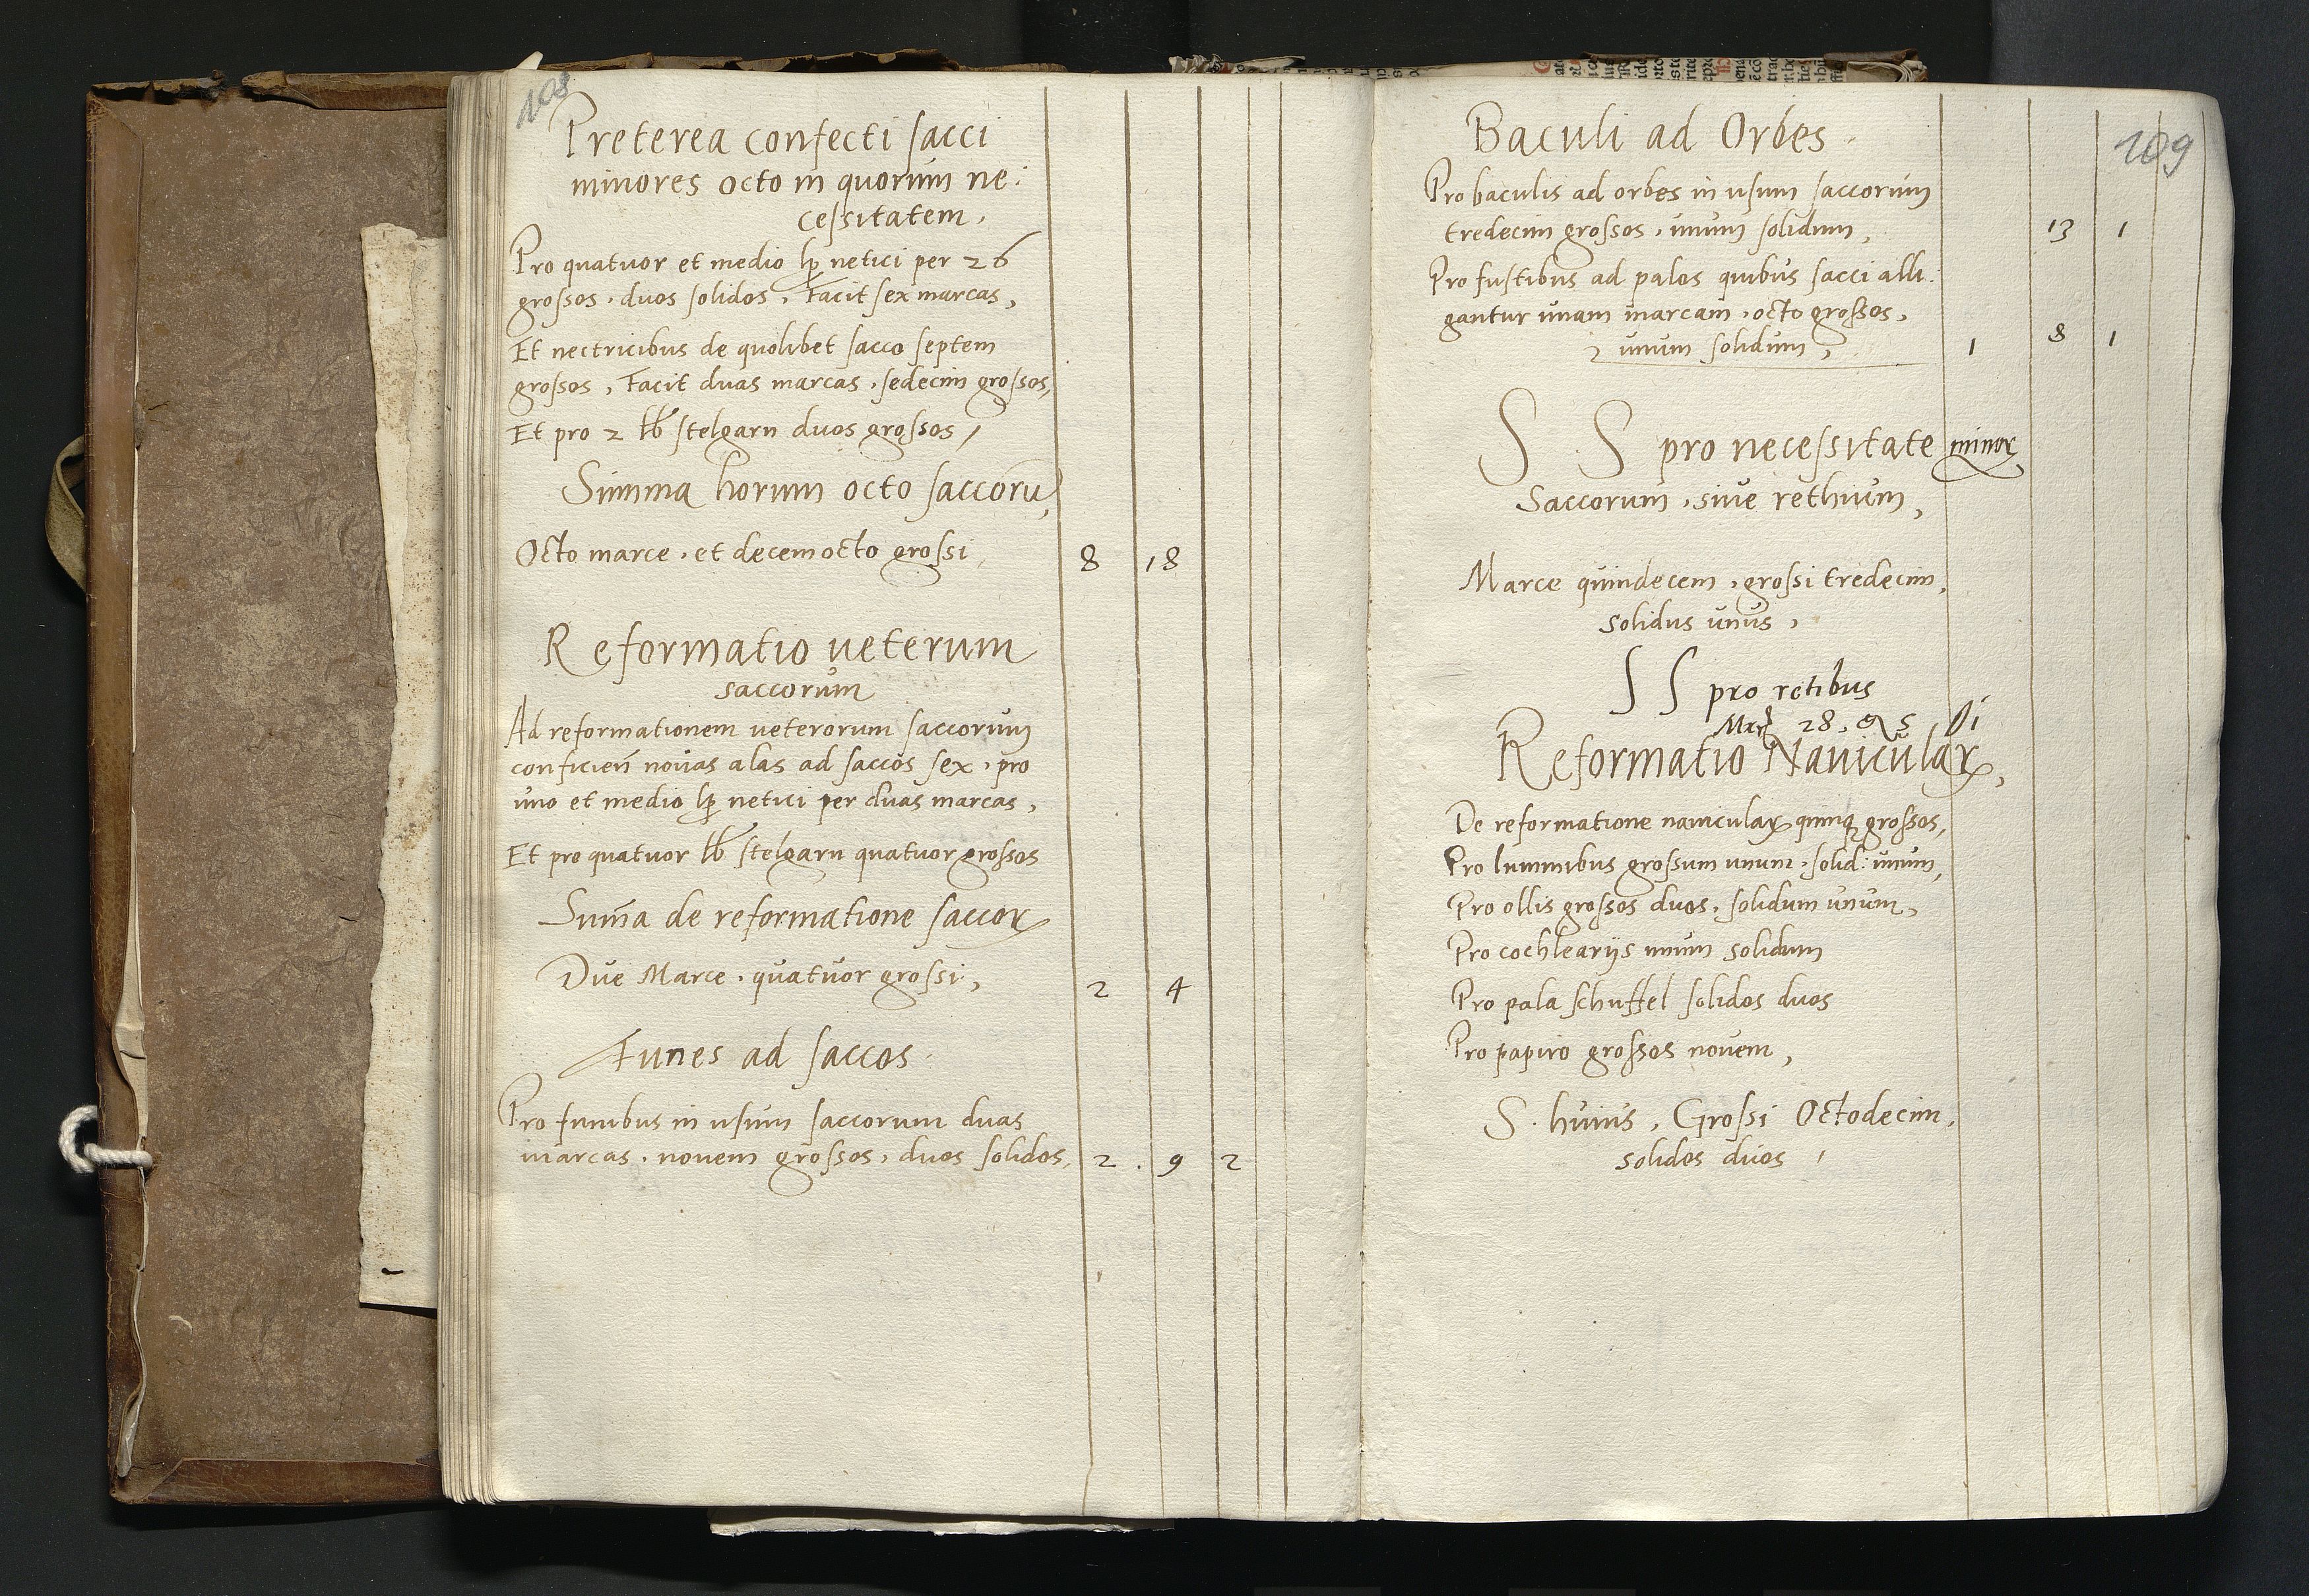 108
Preterea confecti sacci
minores octo in quorum ne:
cessitatem.
Pro quatuor et medio netici per 26
grossos, duos solidos, Facit sex marcas,
Et nectricibus de quolibet sacco septem
grossos, Facit duas marcas, sedecim grossos,
Et pro 2 lb stelgarn duos grossos,
Summa horum octo saccorū,
Octo marce, et decemocto grossi 8 18
Reformatio veterum
saccorum
Ad reformationem veterorum saccorum
conficień novas alas ad saccos sex, pro
uno et medio netici per duas marcas,
Et pro quatuor lb stelgarn quatuor grossos
Sum̄a de reformatione saccoꝝ
Due Marce, quatuor grossi, 2 4
Funes ad saccos.
Pro funibus in usum saccorum duas
marcas, novem grossos, duos solidos, 2 . 9 2
109
Baculi ad Orbes.
Pro baculis ad orbes in usum saccorum
tredecim grossos, unum solidum, 13 1
Pro fustibus ad palos quibus sacci alli:
gantur unam marcam, octo grossos,
unum solidum, 1 8 1
S. S pro necessitate minoꝝ
Saccorum, sive rethium,
Marce quindecem, grossi tredecim,
solidus unus,
S S pro retibus
28, 5
Reformatio Naviculaꝝ,
De reformatione naviculaꝝ quinqꝫ grossos,
Pro luminibus grossum unum, solid: unum,
Pro ollis grossos duos, solidum unum,
Pro cochleariis unum solidum
Pro pala schuffel solidos duos
Pro papiro grossos novem,
S. huius, Grossi Octodecim,
solidos duos,